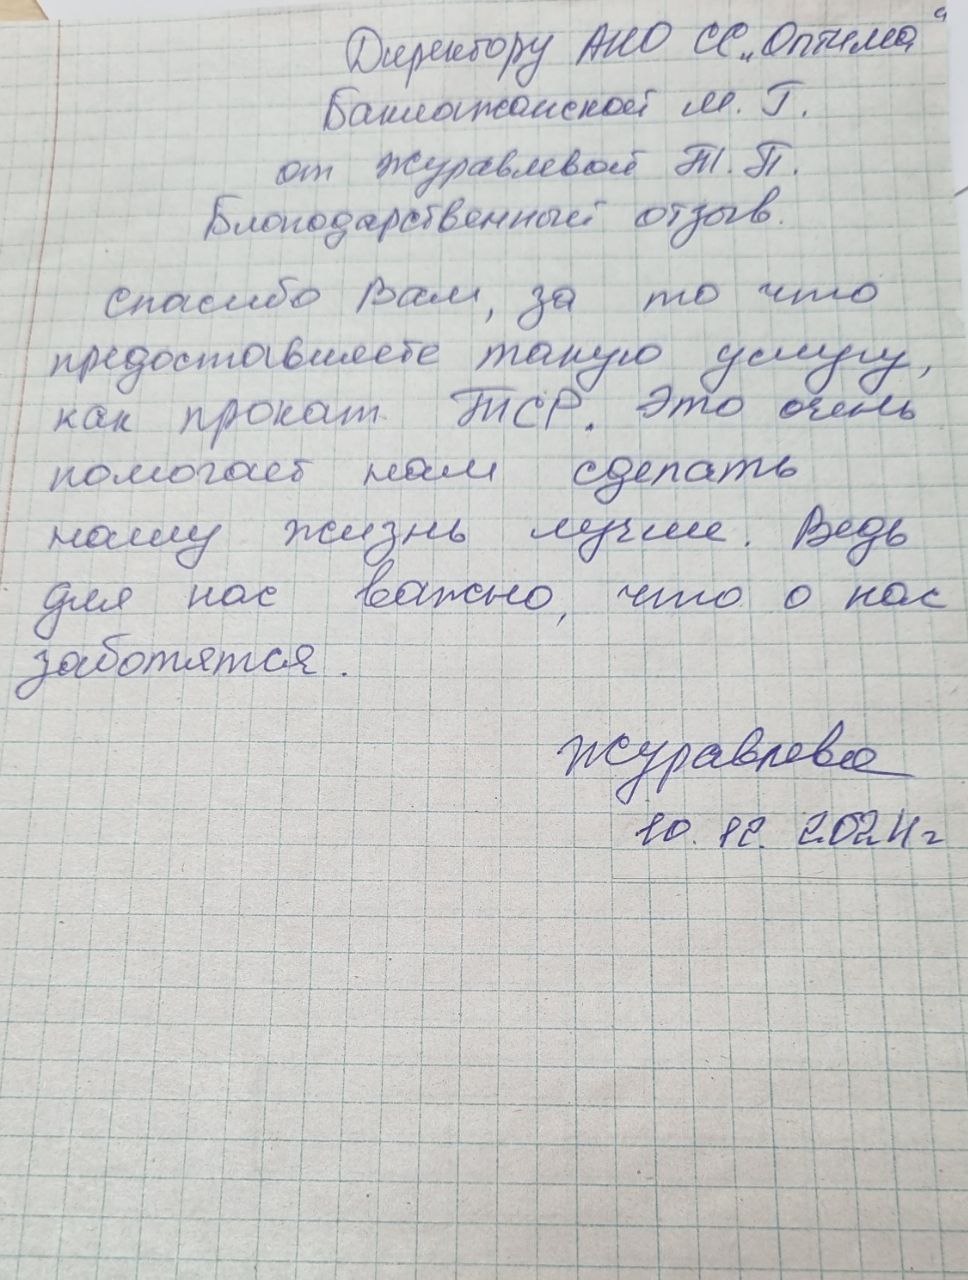 Директору АНО СС „Оптима“
Баклажанской М. Г.
от Журавлевой Т. П.
Благодарственный отзыв.
Спасибо Вам, за то что
предоставляете такую услугу,
как прокат ТСР. Это очень
помогает нам сделать
нашу жизнь лучше. Ведь
для нас важно, что о нас
заботятся.
Журавлева
10. 12. 2024г